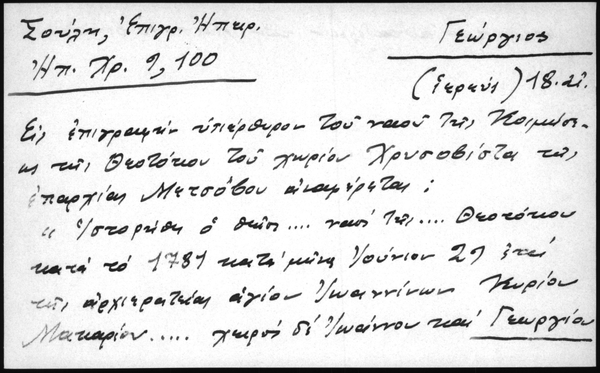 Σούλη, Ἐπιγρ. Ἠπειρ.
Ἠπ. Χρ. 9, 100
Γεώργιος
(ἱερεύς) 18 αἰ.
Εἰς ἐπιγραφὴν ὑπέρθυρον τοῦ ναοῦ τῆς Κοιμήσε-
ως τῆς Θεοτόκου τοῦ χωρίου Χρυσοβίστα τῆς
ἐπαρχίας Μετσόβου ἀναφέρεται:
"Ἱστορήθη ὁ θεῖος.... ναός τῆς.... Θεοτόκου
κατὰ τό 1781 κατά μῆνα Ἰούνιον 29 ἐπί
τῆς ἀρχιερατείας ἁγίου Ἰωαννίνων Κυρίου
Μακαρίου..... χειρός δέ Ἰωάννου καί Γεωργίου